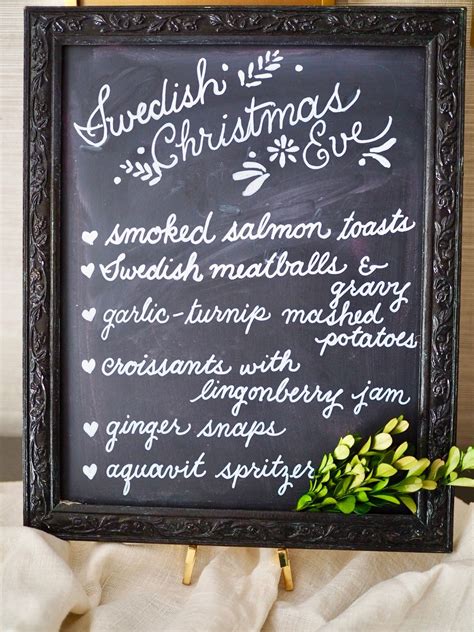 Swedish
Christmas
Eve
smoked salmon toasts
Swedish meatballs &
gravy
garlic-turnip mashed
potatoes
croissants with
lingonberry jam
ginger snaps
aquavit spritzer